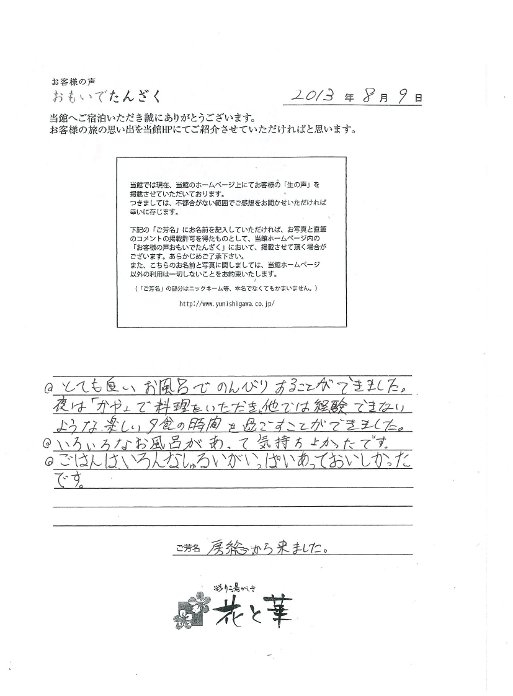 お客様の声
おもいでたんざく
2013 年 8 月 9 日
当館へご宿泊いただき誠にありがとうございます。
お客様の旅の思い出を当館HPにてご紹介させていただければと思います。
当館では現在、当館のホームページ上にてお客様の「生の声」を
掲載させていただいております。
つきましては、不都合がない範囲でご感想をお聞かせいただければ
幸いに存じます。
下記の「ご芳名」にお名前を記入していただければ、お写真と直筆
のコメントの掲載許可を得たものとして、当館ホームページ内の
「お客様の声おもいでたんざく」において、掲載させて頂く場合が
ございます。あらかじめご了承下さい。
また、こちらのお名前と写真に関しましては、当館ホームページ
以外の利用は一切しないことをお約束いたします。
（「ご芳名」の部分はニックネーム等、本名でなくてもかまいません。）
http://www.yunishigawa.co.jp/
@ とても良いお風呂でのんびりすることができました。
夜は「かや」で料理をいただき、他では経験できない
ような楽しい夕食の時間を過ごすことができました。
@ いろいろなお風呂があって気持ちよかったです。
@ ごはんはいろんなしゅるいがいっぱいあっておいしかった
です。
ご芳名 房総から来ました。
花と華